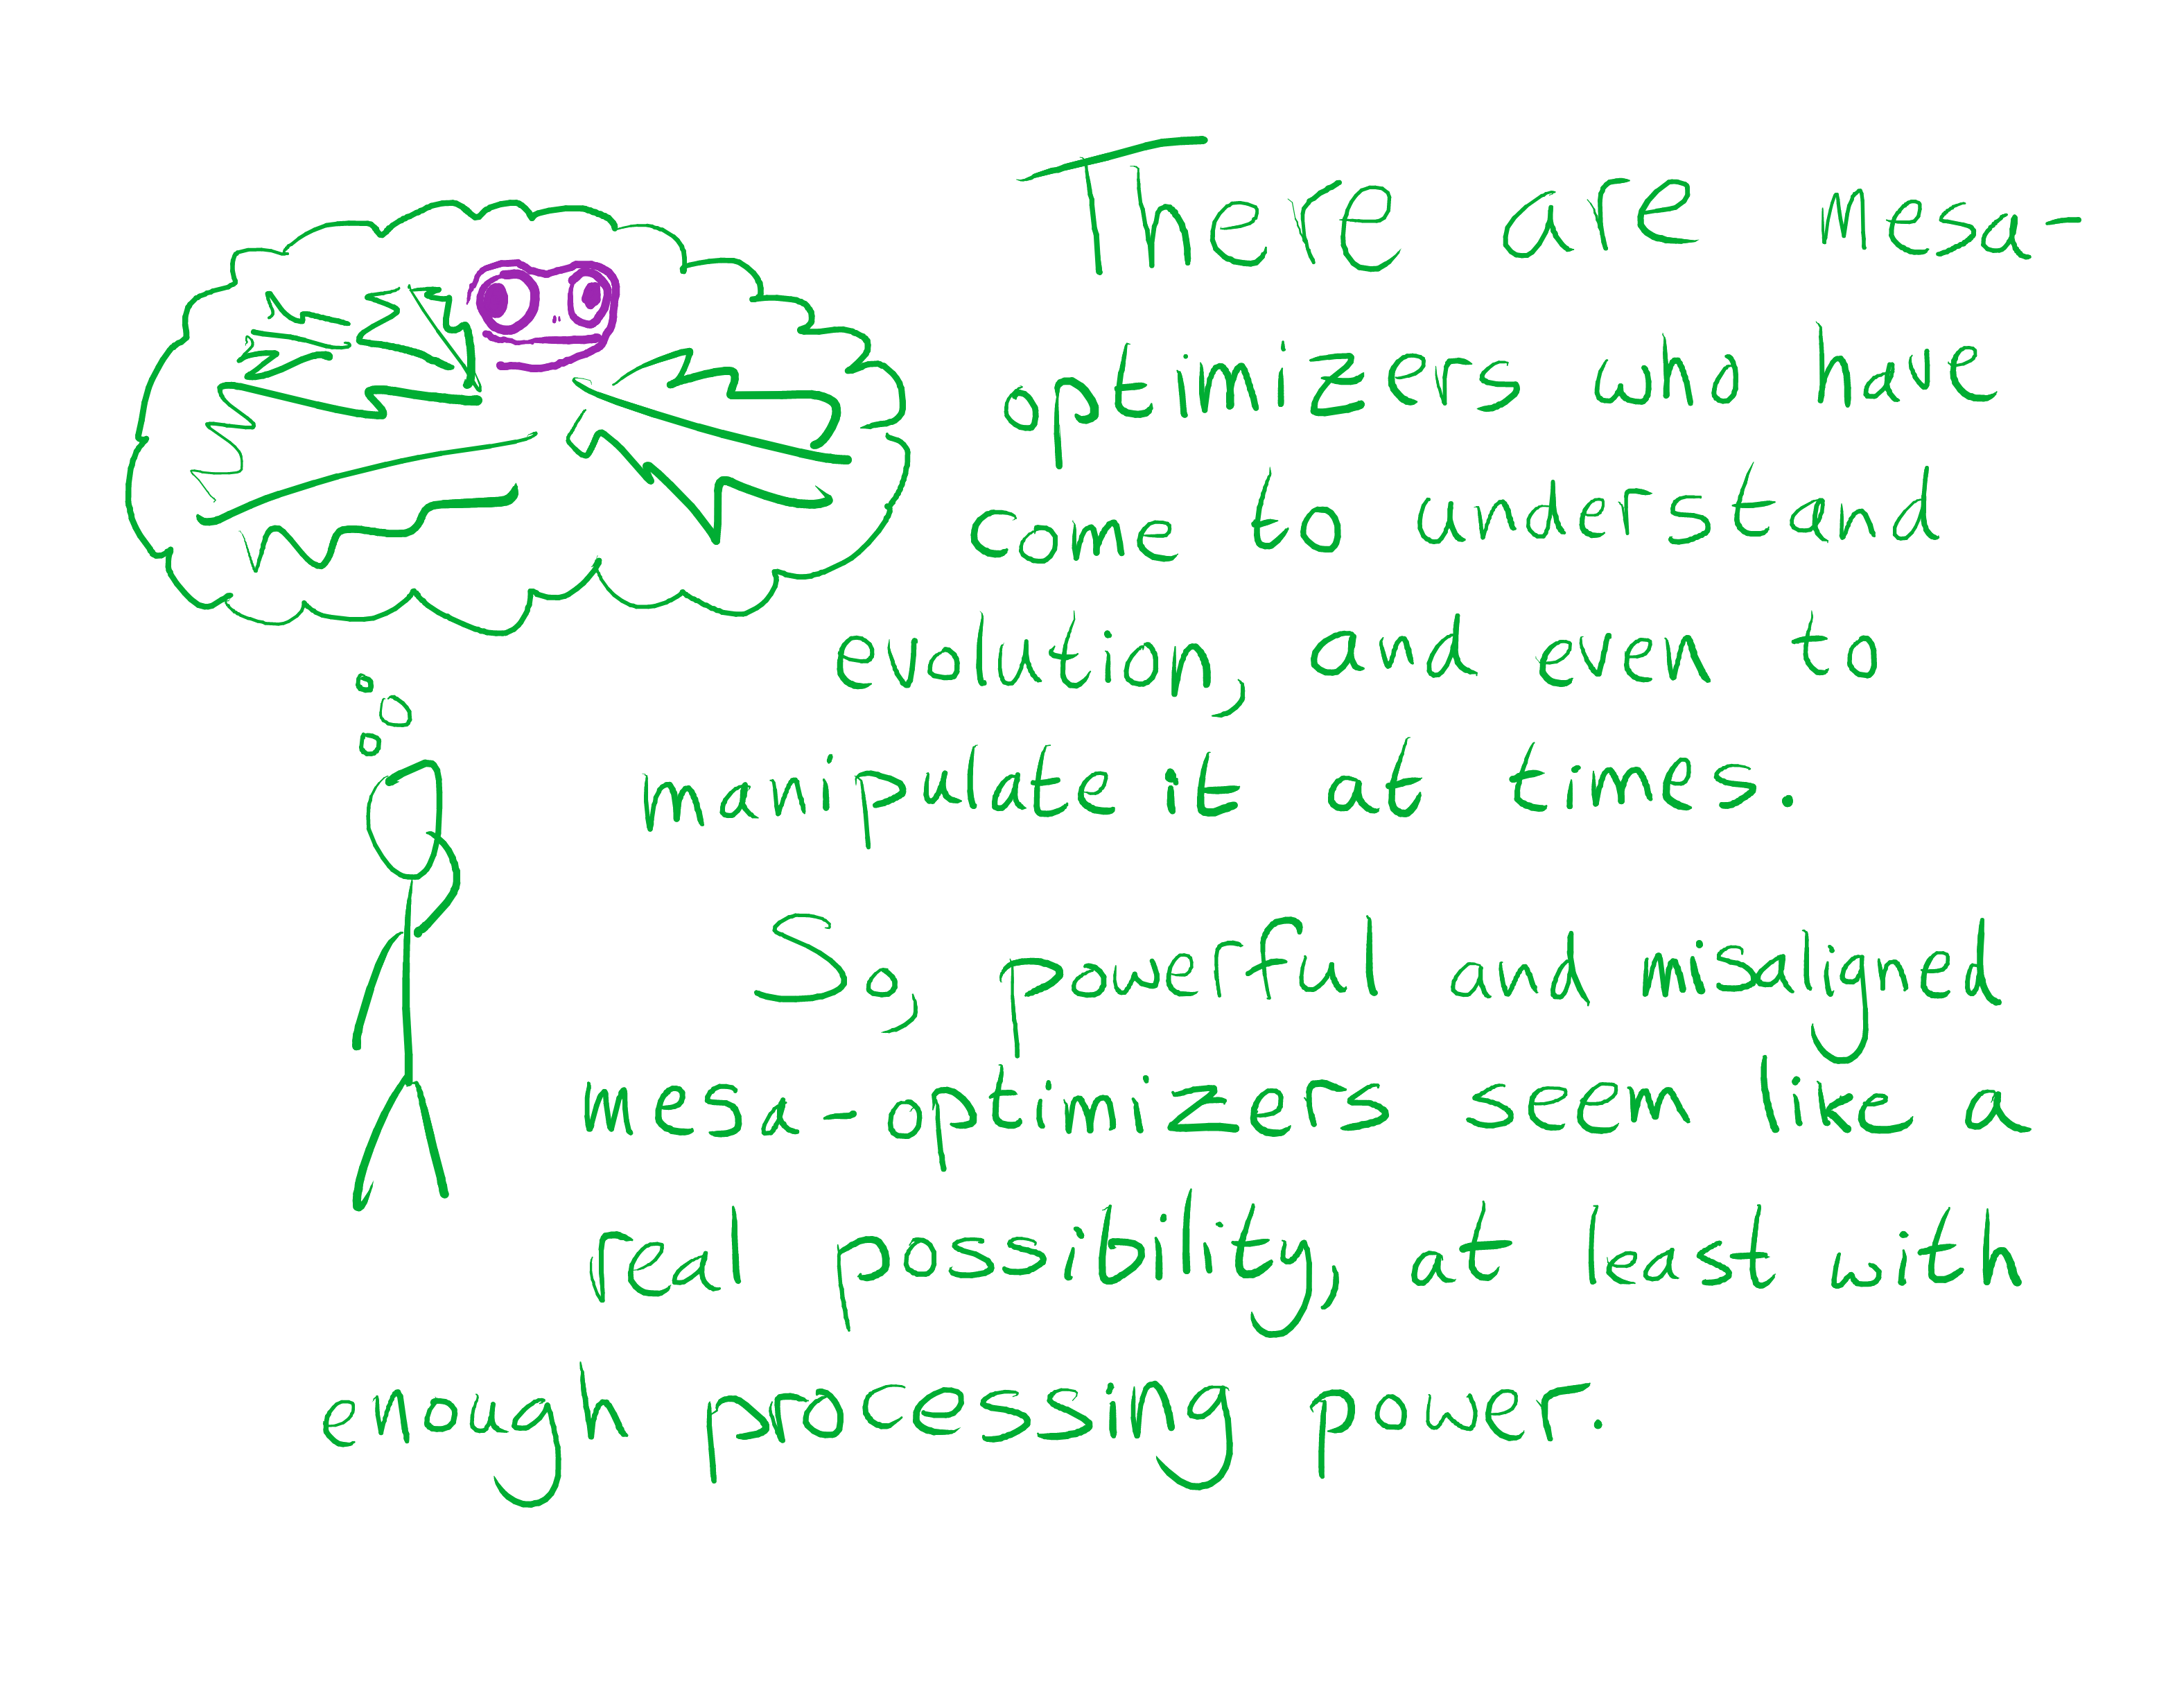 There are mesa-
optimizers who have
come to understand
evolution, and even to
manipulate it at times.
So, powerful and misaligned
mesa-optimizers seem like a
real possibility, at least with
enough processing power.